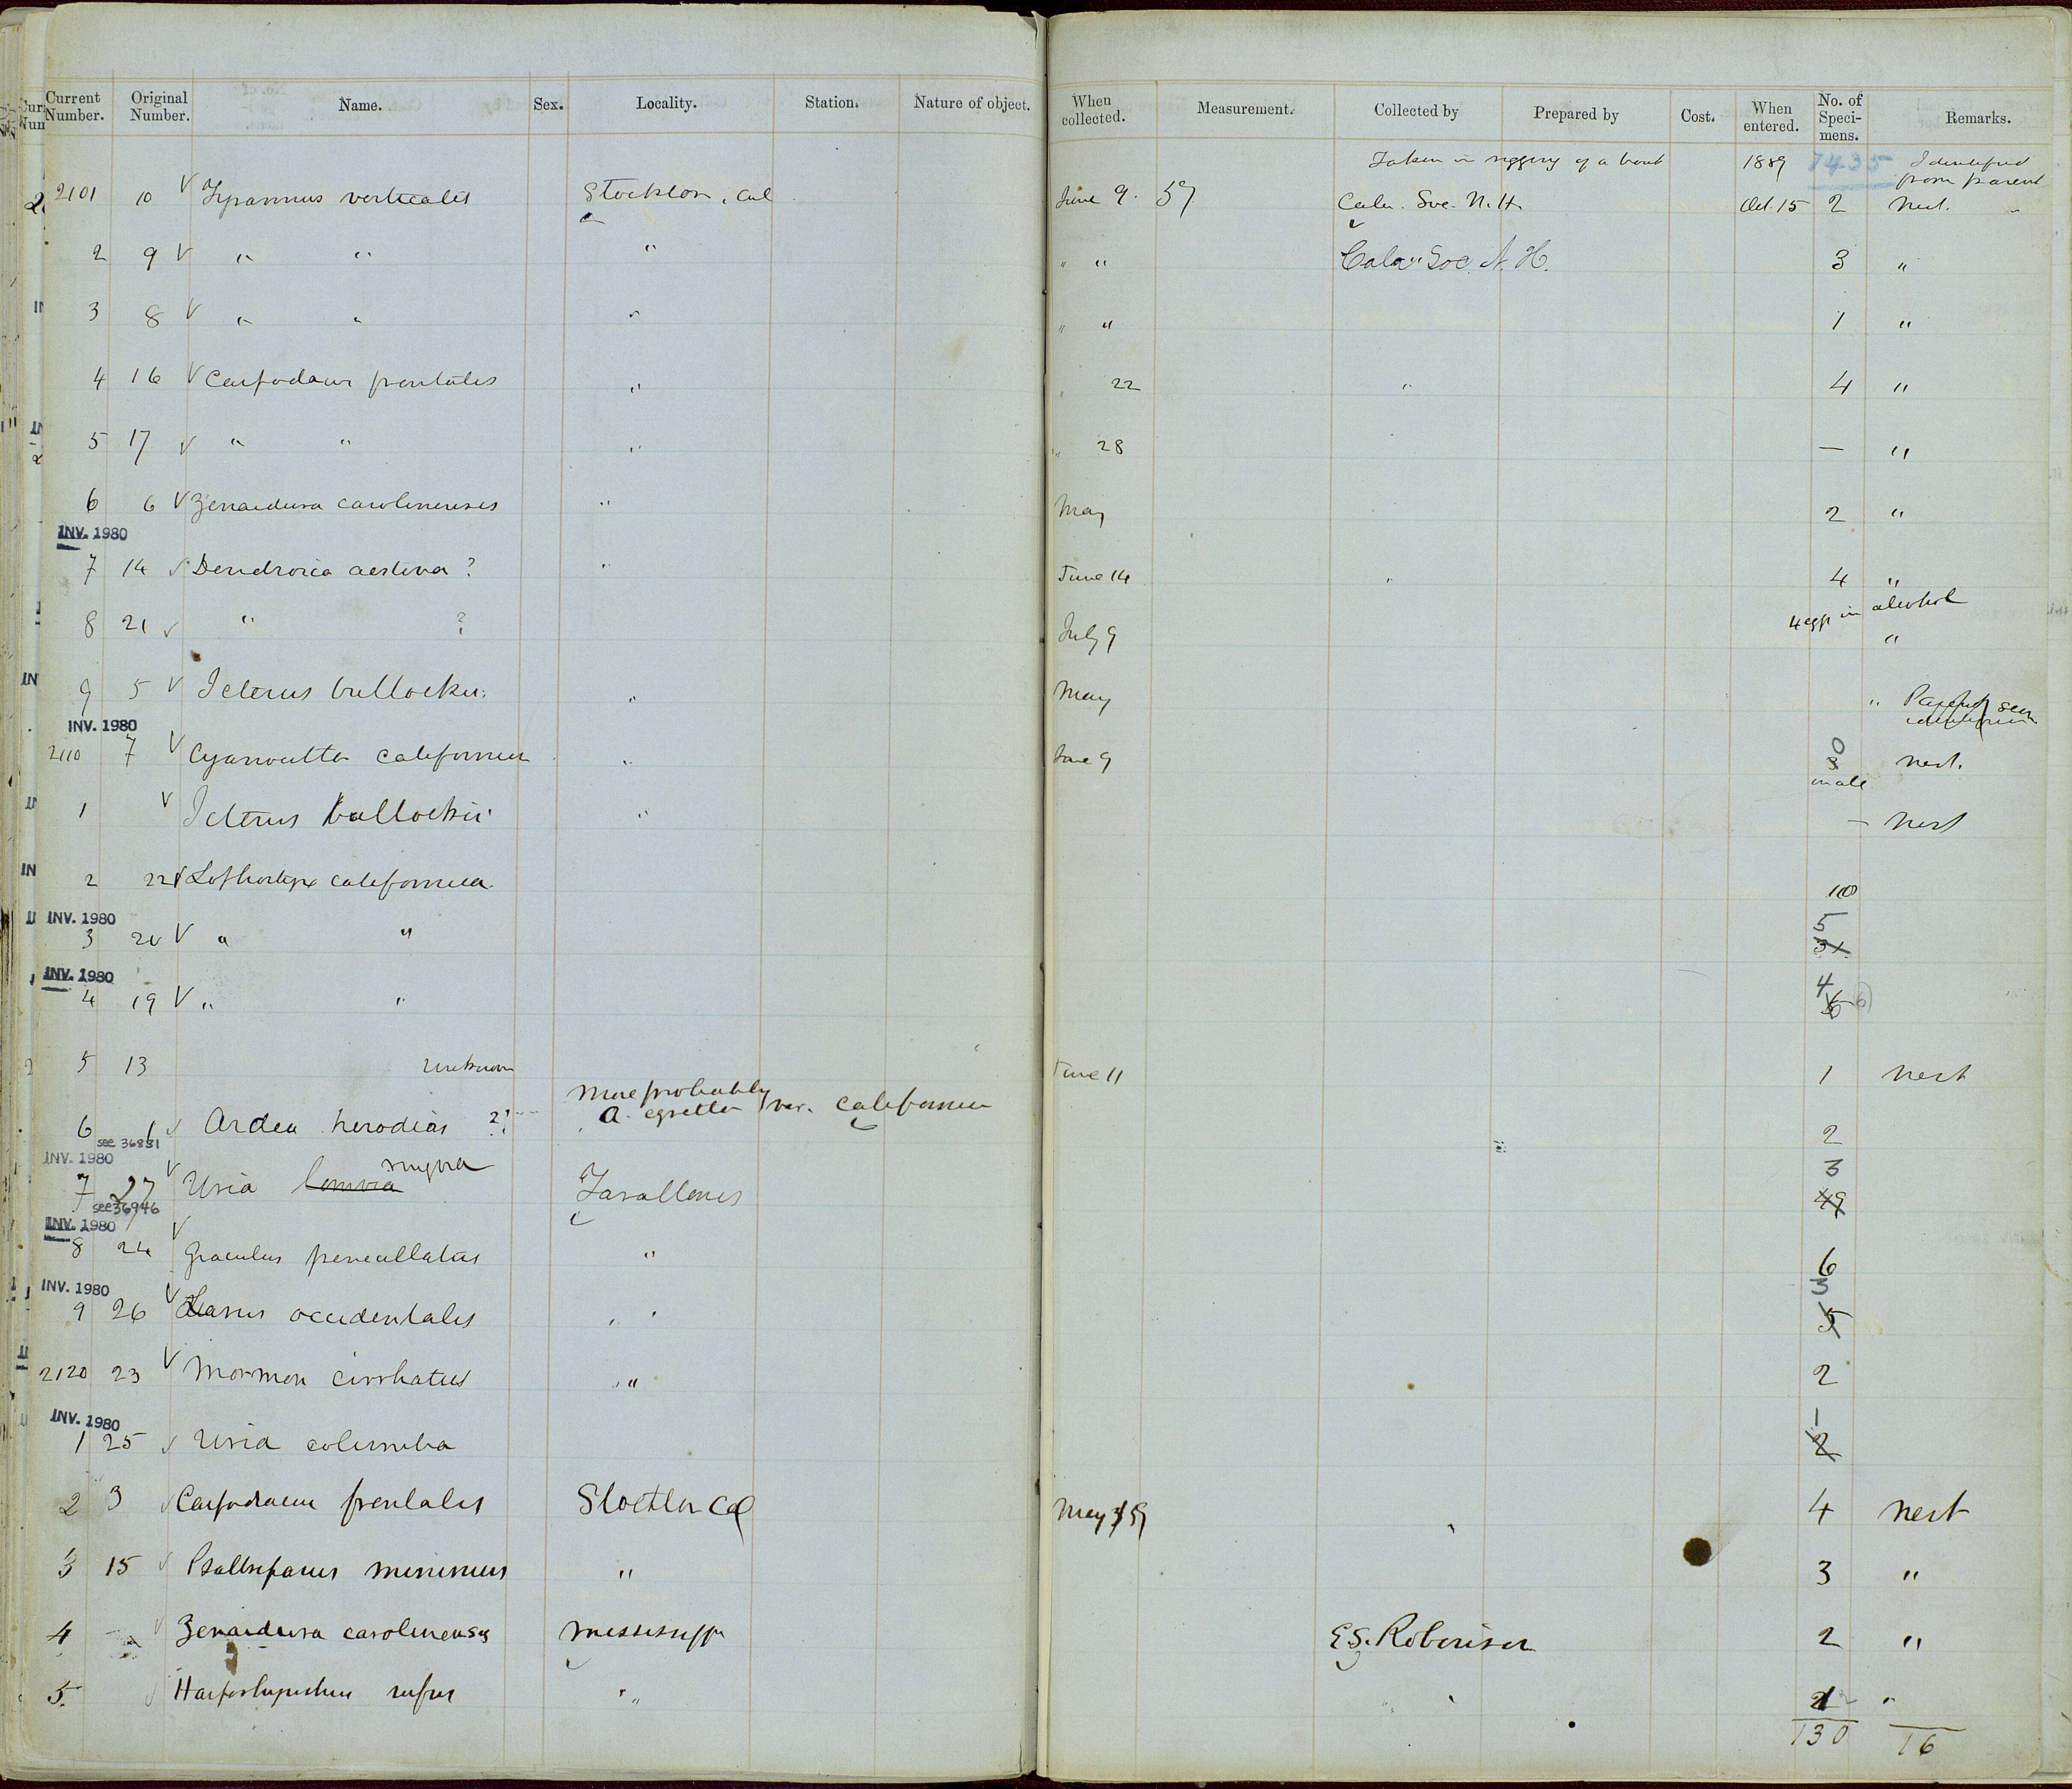 Current Number. Original Number. Name. Sex. Locality. Station. Nature of object. When collected. Measurement. Collected by Prepared by Cost. When entered. No. of Speci- mens. Remarks.
Taken in rigging of a boat 1889 1435 Identified from parent
2101 10 V Tyrannus verticalis Stockton, Cal June 9. 59 Cala. Soc. N. H. Oct. 15 2 Nest.
2 9 V " " " " " Cala. Soc. N. H. 3 "
3 8 V " " " " " 1 "
4 16 V Carpodacus frontalis " " 22 " 4 "
5 17 V " " " " 28 — "
6 6 V Zenaidura carolinensis " May 2 "
INV. 1980
7 14 V Dendroica aestiva ? " June 14 " 4 "
8 21 V " ? July 9 4 eggs in alcohol "
9 5 V Icterus bullockii " May " Parent seen
INV. 1980
2110 7 V Cyanocitta californica " June 9 0 3 Nest.
1 V Icterus bullockii " — Nest
2 22 V Lophortyx californica 10
INV. 1980
3 20 V " " 5 31
INV. 1980
4 19 V " " 4 6
5 13 Unknown June 11 1 nest
6 1 V Ardea herodias ?? More probably A. egretta var. californica 2
see 36881
INV. 1980
7 27 V Uria lomvia ringvia Farallones 3 49
see 36946
INV. 1980
8 24 V Graculus penicillatus " 6
INV. 1980
9 26 V Larus occidentalis " 3 5
2120 23 V Mormon cirrhatus " 2
INV. 1980
1 25 V Uria columba 1 2
2 3 V Carpodacus frontalis Stockton Cal May 4 nest
3 15 V Psaltriparus minimus " 3 "
4 — V Zenaidura carolinensis Mississippi E.S. Robinson 2 "
5. V Harporhynchus rufus " " "
130 16